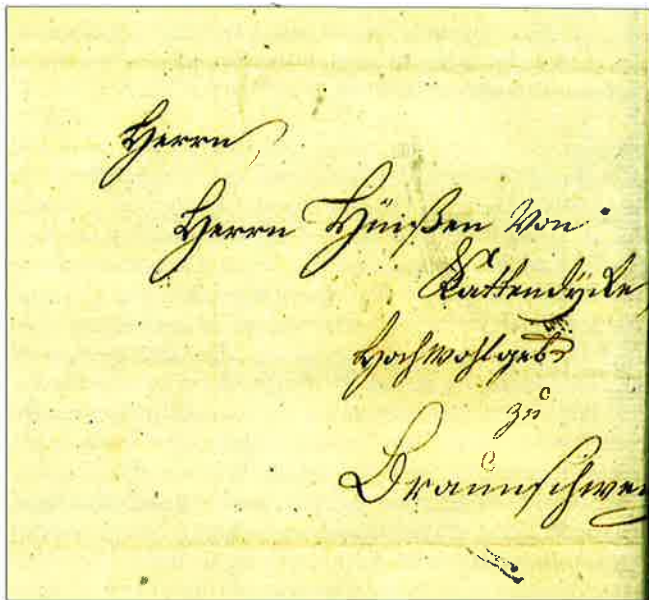 Herrn
Herrn Hüißen Von
Kattendÿcke
Hochwohlgeb
zu
Braunschwei